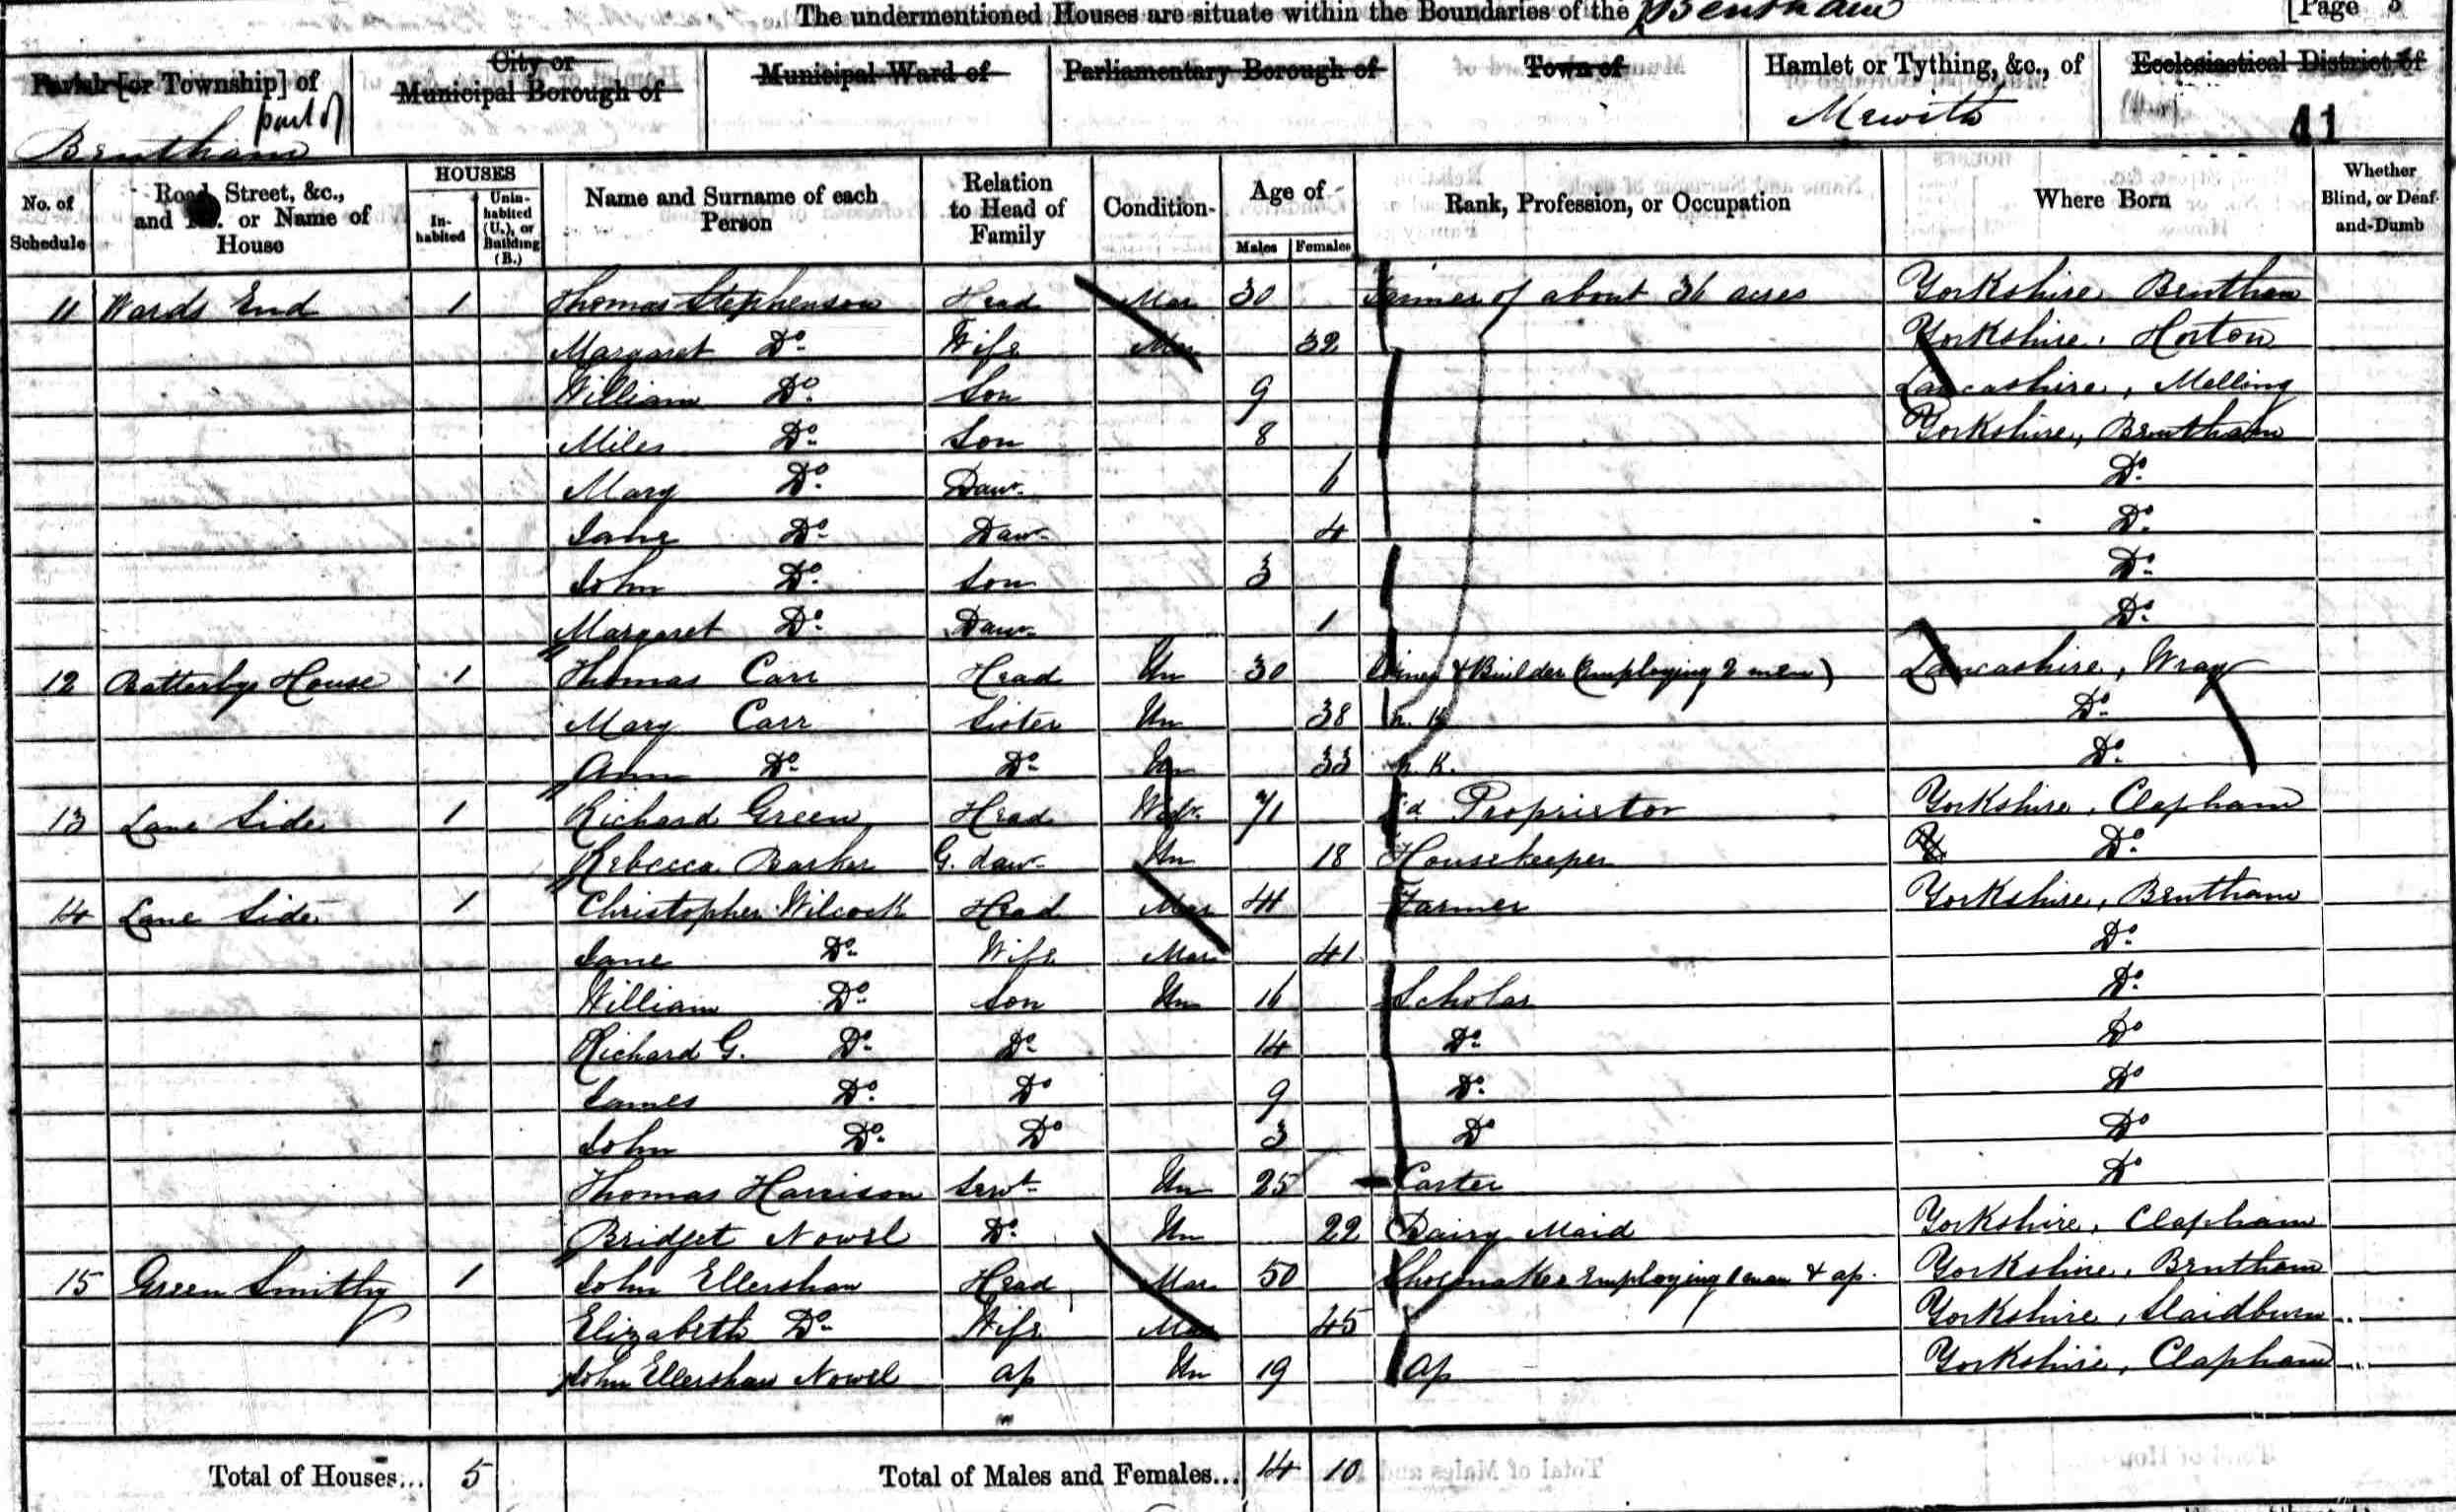 The undermentioned Houses are situate within the Boundaries of the Bentham [Page
Parish [or Township] of City or Municipal Borough of Municipal Ward of Parliamentary Borough of Town of Hamlet or Tything, &c., of Ecclesiastical District of
part of Bentham Mewith 41
No. of Schedule Road, Street, &c., and No. or Name of House HOUSES Inhabited Uninhabited (U.), or Building (B.) Name and Surname of each Person Relation to Head of Family Condition Age of Males Females Rank, Profession, or Occupation Where Born Whether Blind, or Deaf-and-Dumb
11 Wards End 1 Thomas Stephenson Head Mar 30 Farmer of about 36 acres Yorkshire Bentham
Margaret Do Wife Mar 32 Yorkshire, Horton
William Do Son 9 Lancashire, Melling
Miles Do Son 8 Yorkshire, Bentham
Mary Do Daur 6 Do
Jane Do Daur 4 Do
John Do Son 3 Do
Margaret Do Daur 1 Do
12 Batterby House 1 Thomas Carr Head Un 30 Joiner & Builder (employing 2 men) Lancashire, Wray
Mary Carr Sister Un 38 h. k. Do
Ann Do Do Un 33 h. k. Do
13 Lane Side 1 Richard Green Head Widr 71 Ld Proprietor Yorkshire, Clapham
Rebecca Barker G. daur Un 18 Housekeeper Do
14 Lane Side 1 Christopher Wilcock Head Mar 44 Farmer Yorkshire, Bentham
Jane Do Wife Mar 41 Do
William Do Son Un 16 Scholar Do
Richard G. Do Do 14 Do Do
James Do Do 9 Do Do
John Do Do 3 Do Do
Thomas Harrison Servt Un 25 Carter Do
Bridget Nowel Do Un 22 Dairy Maid Yorkshire, Clapham
15 Green Smithy 1 John Ellershaw Head Mar 50 Shoemaker Employing 1 man & ap. Yorkshire, Bentham
Elizabeth Do Wife Mar 45 Yorkshire, Slaidburn
John Ellershaw Nowel ap Un 19 Ap Yorkshire, Clapham
Total of Houses... 5 Total of Males and Females... 14 10